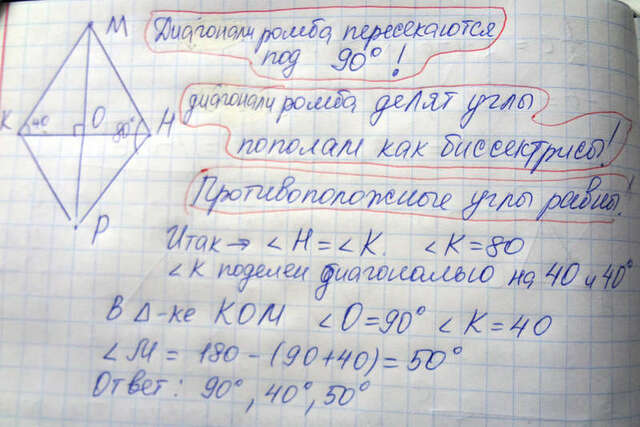 M
Диагонали ромба пересекаются
под 90°!
K 40 O 80° H
диагонали ромба делят углы
пополам как биссектрисы!
Противоположные углы равны!
P
Итак → ∠H = ∠K. ∠K = 80
∠K поделен диагональю на 40 и 40°
В Δ-ке КОМ ∠O = 90° ∠K = 40
∠M = 180 - (90+40) = 50°
Ответ: 90°, 40°, 50°